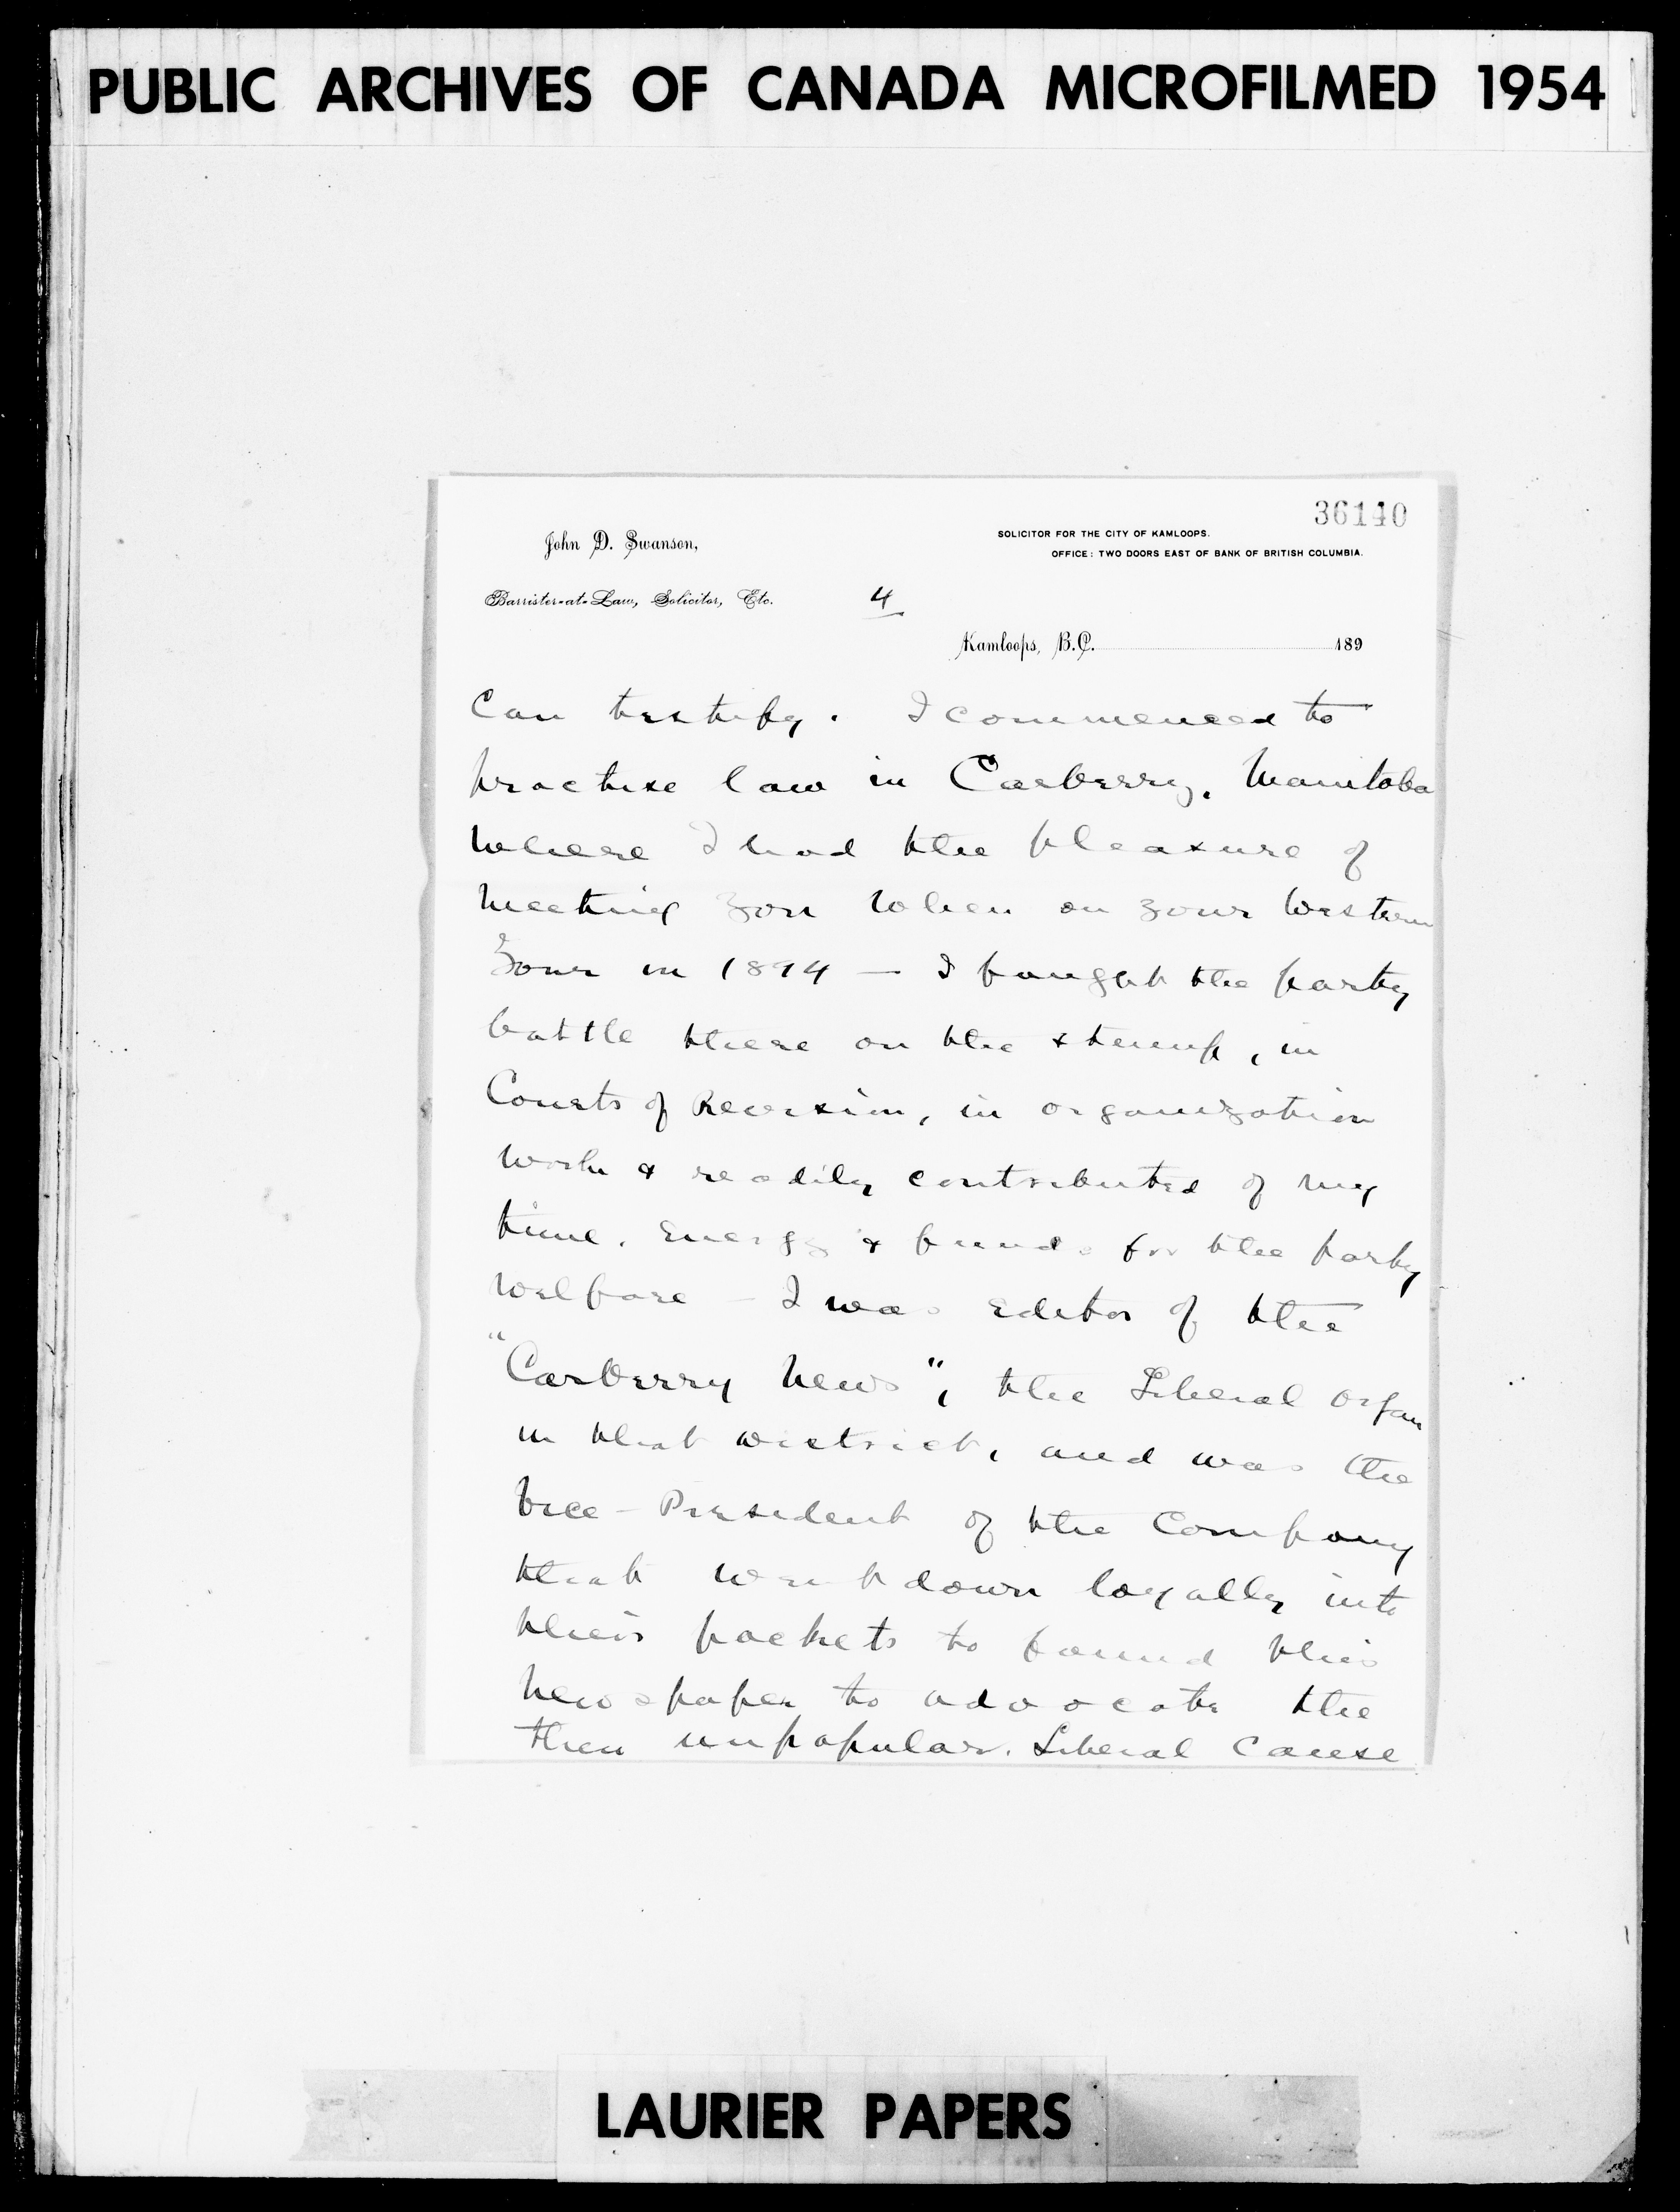 PUBLIC ARCHIVES OF CANADA MICROFILMED 1954
36140
John D. Swanson,
SOLICITOR FOR THE CITY OF KAMLOOPS.
OFFICE: TWO DOORS EAST OF BANK OF BRITISH COLUMBIA.
Barrister-at-Law, Solicitor, Etc.
4
Kamloops, B.C. 189
Can testify. I commenced to
practise law in Carberry, Manitoba
where I had the pleasure of
meeting you when on your Western
Tour in 1894 — I fought the party
battle there on the stump, in
Courts of Revision, in organization
work & readily contributed of my
time, energy & funds for the party
welfare - I was editor of the
"Carberry News", the Liberal organ
in that district, and was the
Vice-President of the Company
that went down loyally into
their pockets to found this
newspaper to advocate the
then unpopular Liberal Cause
LAURIER PAPERS